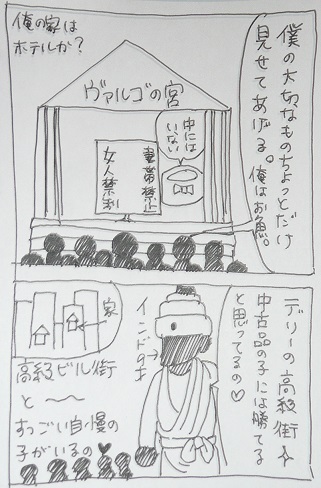 僕の大切なものちょっとだけ
見せてあげる。俺はお魚。
俺の家は
ホテルか?
ヴァルゴの宮
中には
いない
妻帯禁止
女人禁制
デリーの高級街
中古品の子には勝てる
と思ってるの♡
インドの才→
家
高級ビル街
と〜〜
すっごい自慢の
子がいるの♥